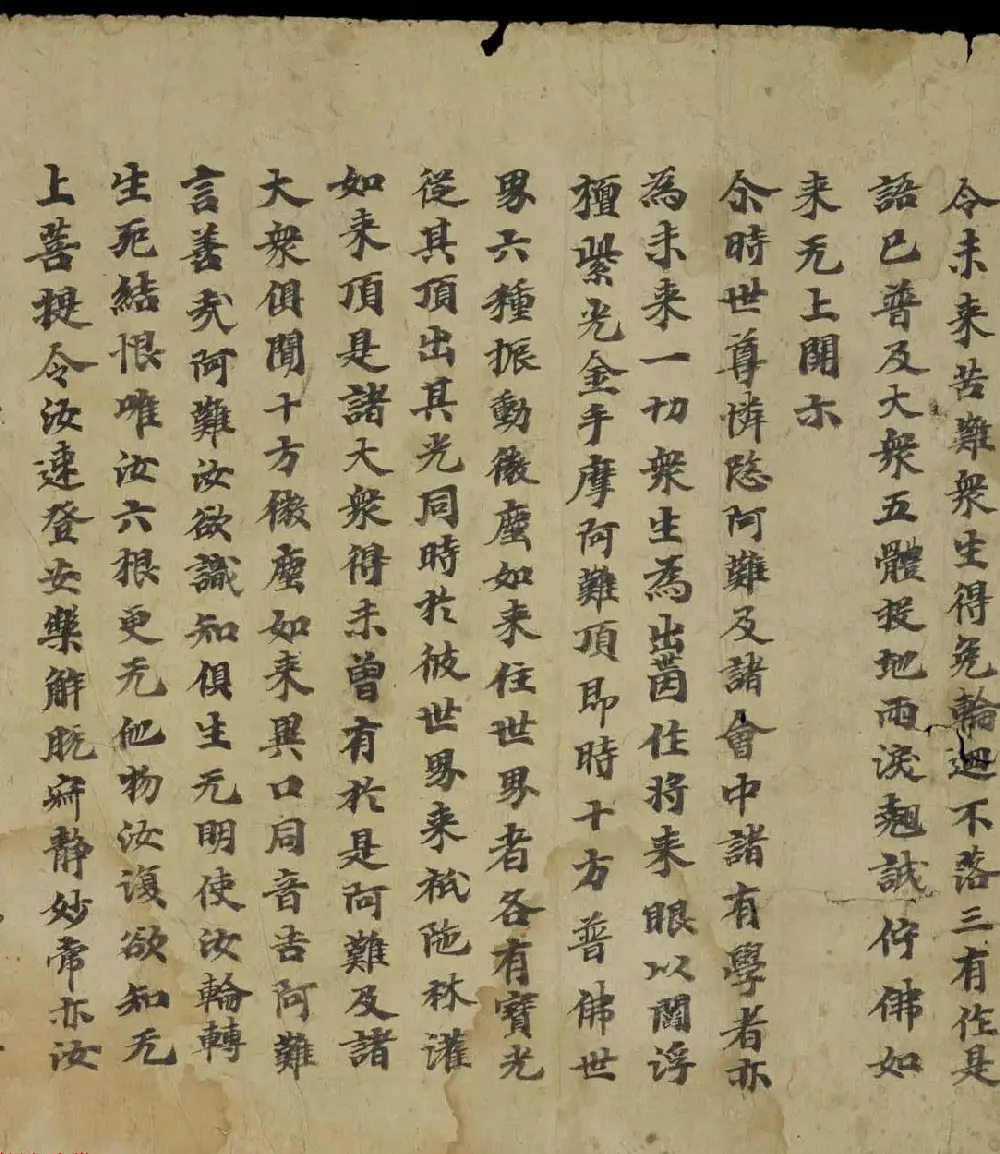 令未来苦難衆生得免輪迴不落三有作是
語已普及大衆五體投地雨淚翹誠佇佛如
来无上開示
尒時世尊憐愍阿難及諸會中諸有學者亦
為未来一切衆生為出世因作将来眼以閻浮
檀紫光金手摩阿難頂即時十方普佛世
界六種振動微塵如来住世界者各有寶光
從其頂出其光同時於彼世界来祇陁林灌
如来頂是諸大衆得未曾有於是阿難及諸
大衆俱聞十方微塵如来異口同音告阿難
言善㢤阿難汝欲識知俱生无明使汝輪轉
生死結根唯汝六根更无他物汝復欲知无
上菩提令汝速登安樂解脱㝥静妙常亦汝